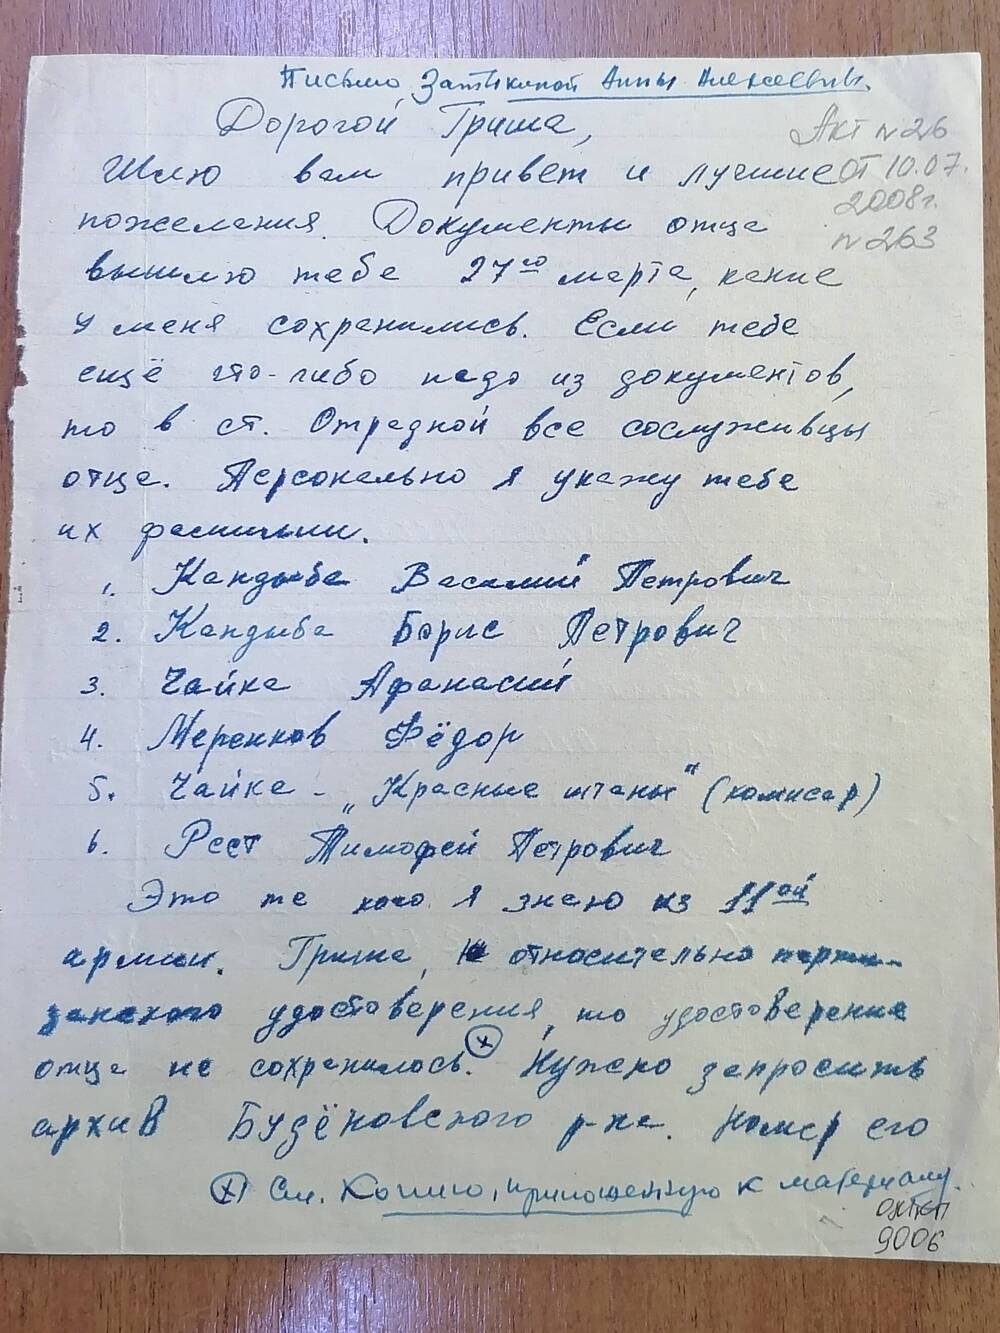 Письмо Затыкиной Анны Алексеевны.
Дорогой Гриша,
Акт N 26
Шлю вам привет и лучшие
от 10.07.
2008г.
пожелания. Документы отца
N 263
вышлю тебе 27го марта, какие
у меня сохранились. Если тебе
ещё что-либо надо из документов,
то в ст. Отрадной все сослуживцы
отца. Персонально я укажу тебе
их фамилии.
1. Кандыба Василий Петрович
2. Кандыба Борис Петрович
3. Чайка Афанасий
4. Меренков Фёдор
5. Чайка - „Красные штаны" (комисар)
6. Реет Тимофей Петрович
Это те кого я знаю из 11ой
армии. Гриша, относительно парти-
занского удостоверения, то удостоверение
отца не сохранилось. (х) Нужно запросить
архив Будёновского р-на. Номер его
(х) См. Копию, приложенную к материалу.
ОКПСП
9006